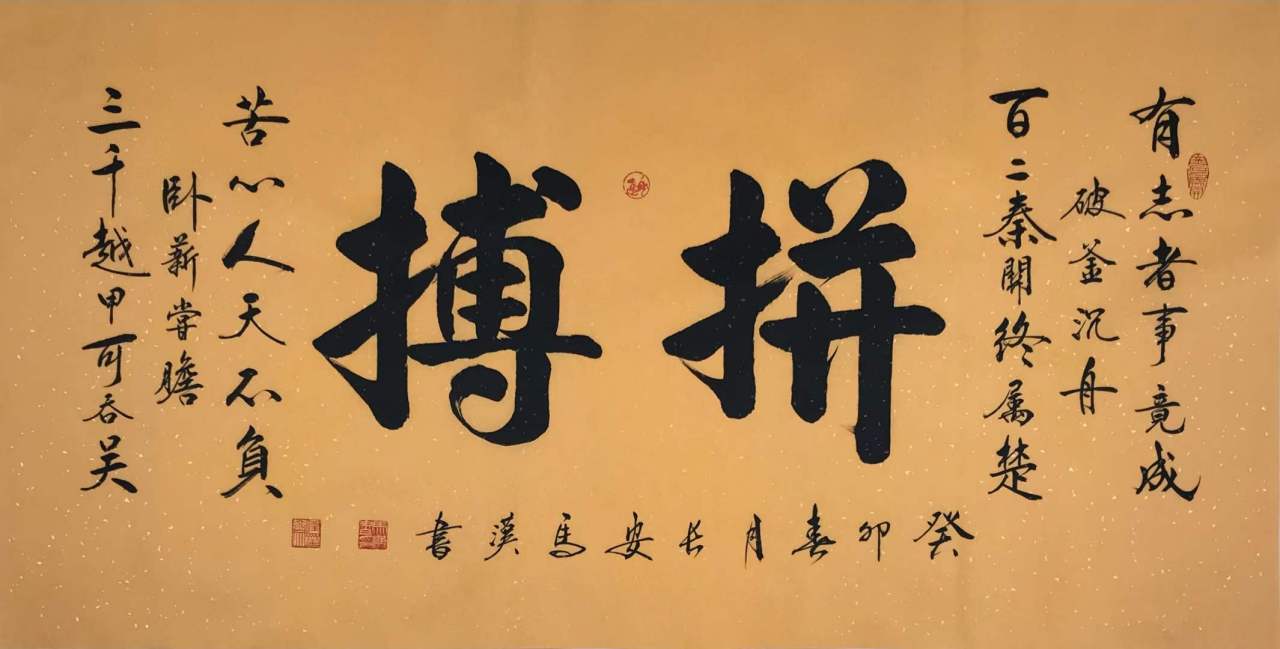 有志者事竟成
破釜沉舟
百二秦關终属楚
拼搏
苦心人天不負
卧薪嘗膽
三千越甲可吞吴
癸卯春月长安馬漢書